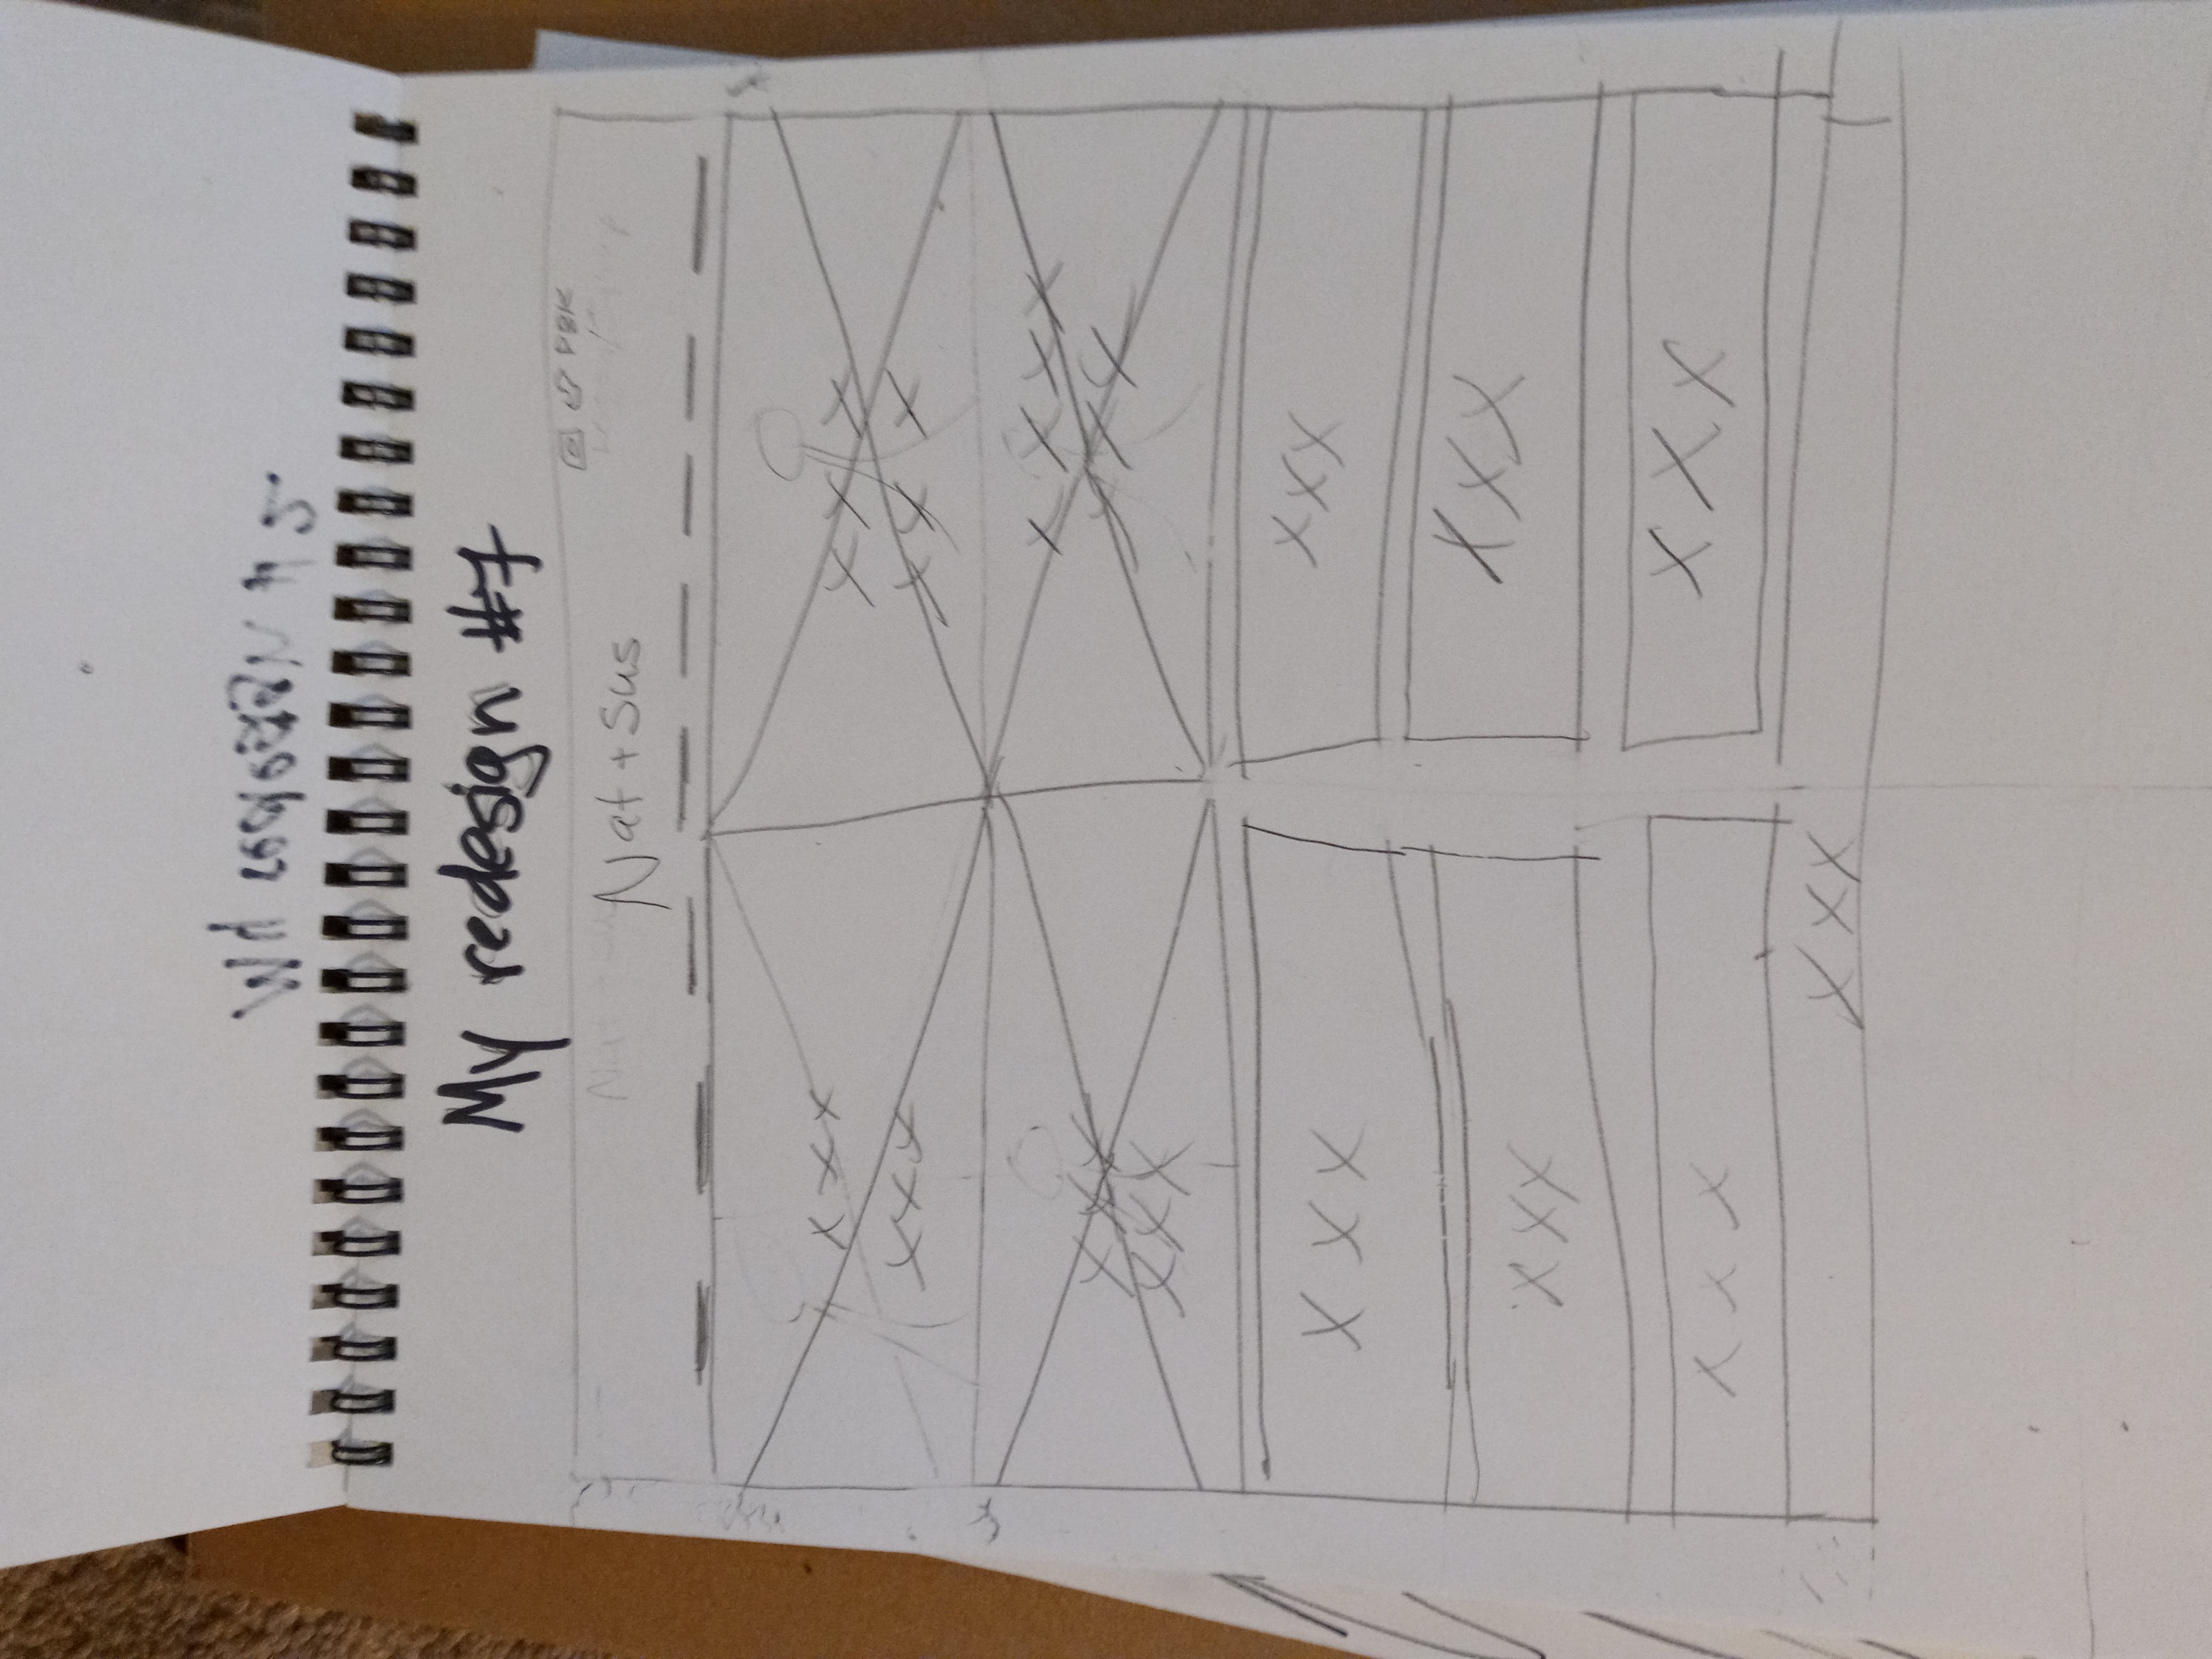 My redesign #7
Nat + Sus
x x x
x x x
x x x
x x x
x x x
x x x
x x x x
x x x
X X X
X X X
X X X
X X X
X X X
X X X
X X X